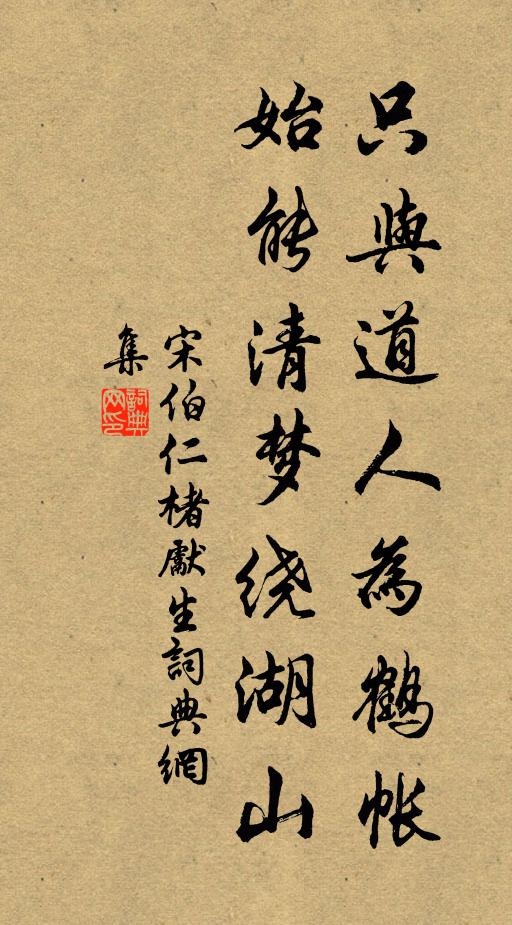 只與道人為鹤帐
始能清梦绕湖山
宋伯仁楮獻生詞典網
集
詞典網印